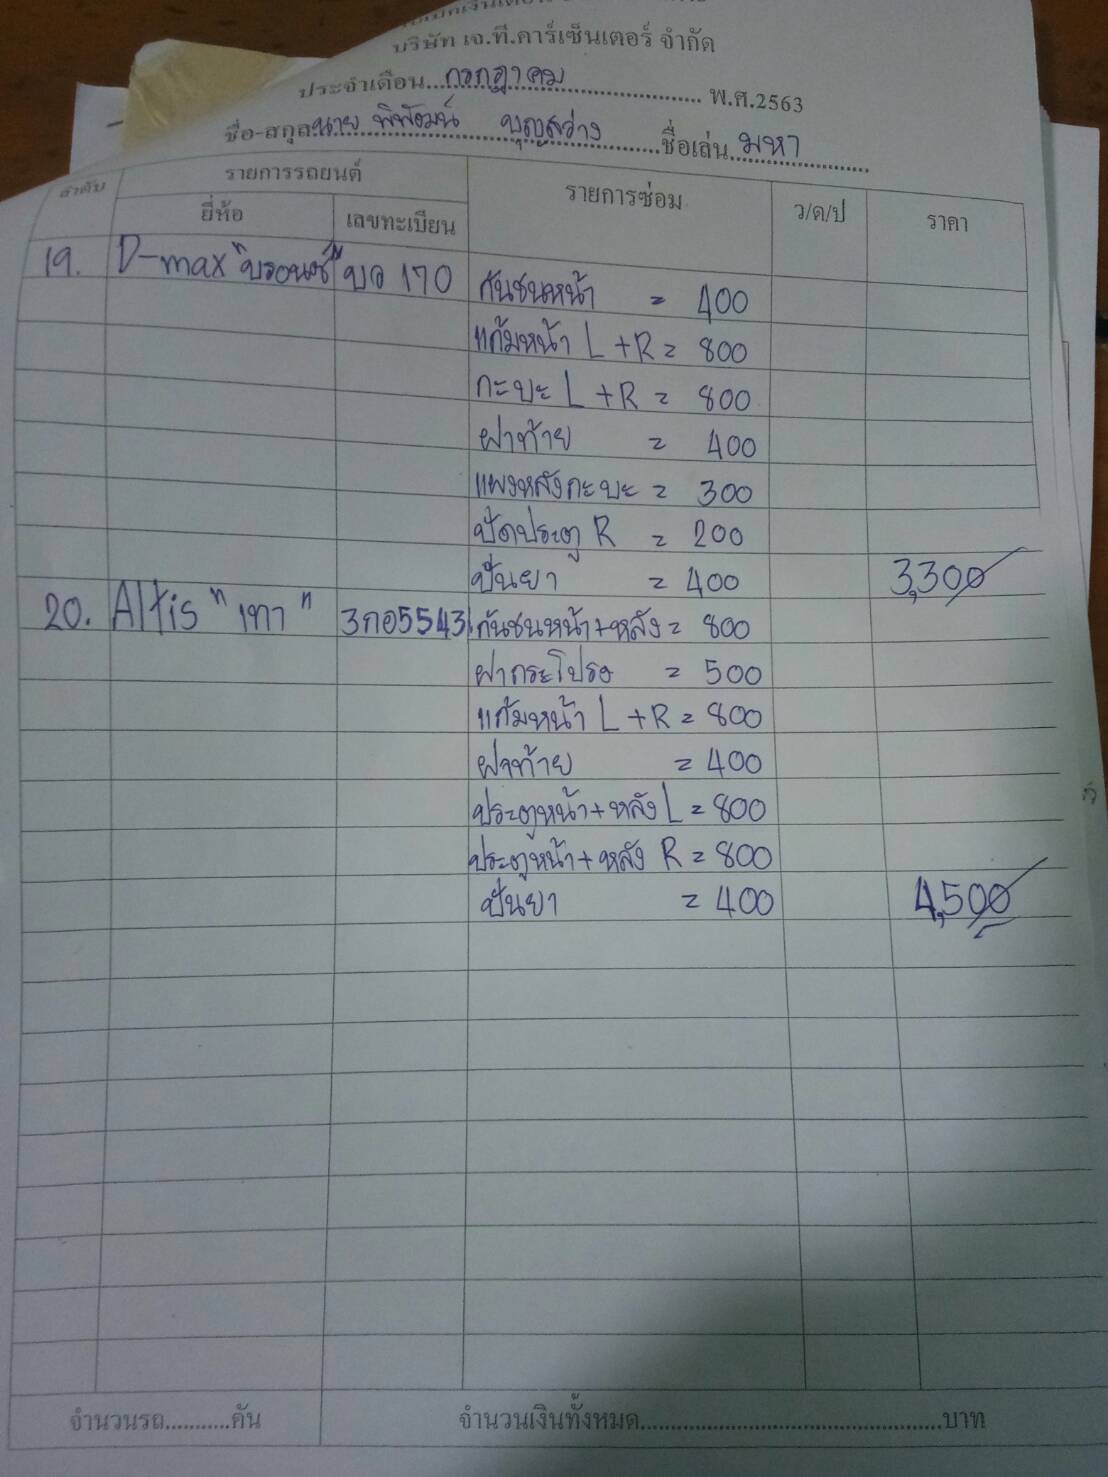 บริษัท เจ.ที.คาร์เซ็นเตอร์ จำกัด
ประจำเดือน...กรกฎาคม...พ.ศ.2563
ชื่อ-สกุล นาย พิพัฒน์ บุญสว่าง...ชื่อเล่น...มหา...
ลำดับ รายการรถยนต์ รายการซ่อม ว/ด/ป ราคา
ยี่ห้อ เลขทะเบียน
19. D-max "บรอนซ์" บว 170 กันชนหน้า = 400
แก้มหน้า L+R = 800
กะบะ L+R = 800
ฝาท้าย = 400
แผงหลังกะบะ = 300
ปัดประตู R = 200
ปั่นยา = 400 3,300
20. Altis "เทา" 3กอ5543 กันชนหน้า+หลัง = 800
ฝากระโปรง = 500
แก้มหน้า L+R = 800
ฝาท้าย = 400
ประตูหน้า+หลัง L = 800
ประตูหน้า+หลัง R = 800
ปั่นยา = 400 4,500
จำนวนรถ...........คัน จำนวนเงินทั้งหมด................................................บาท